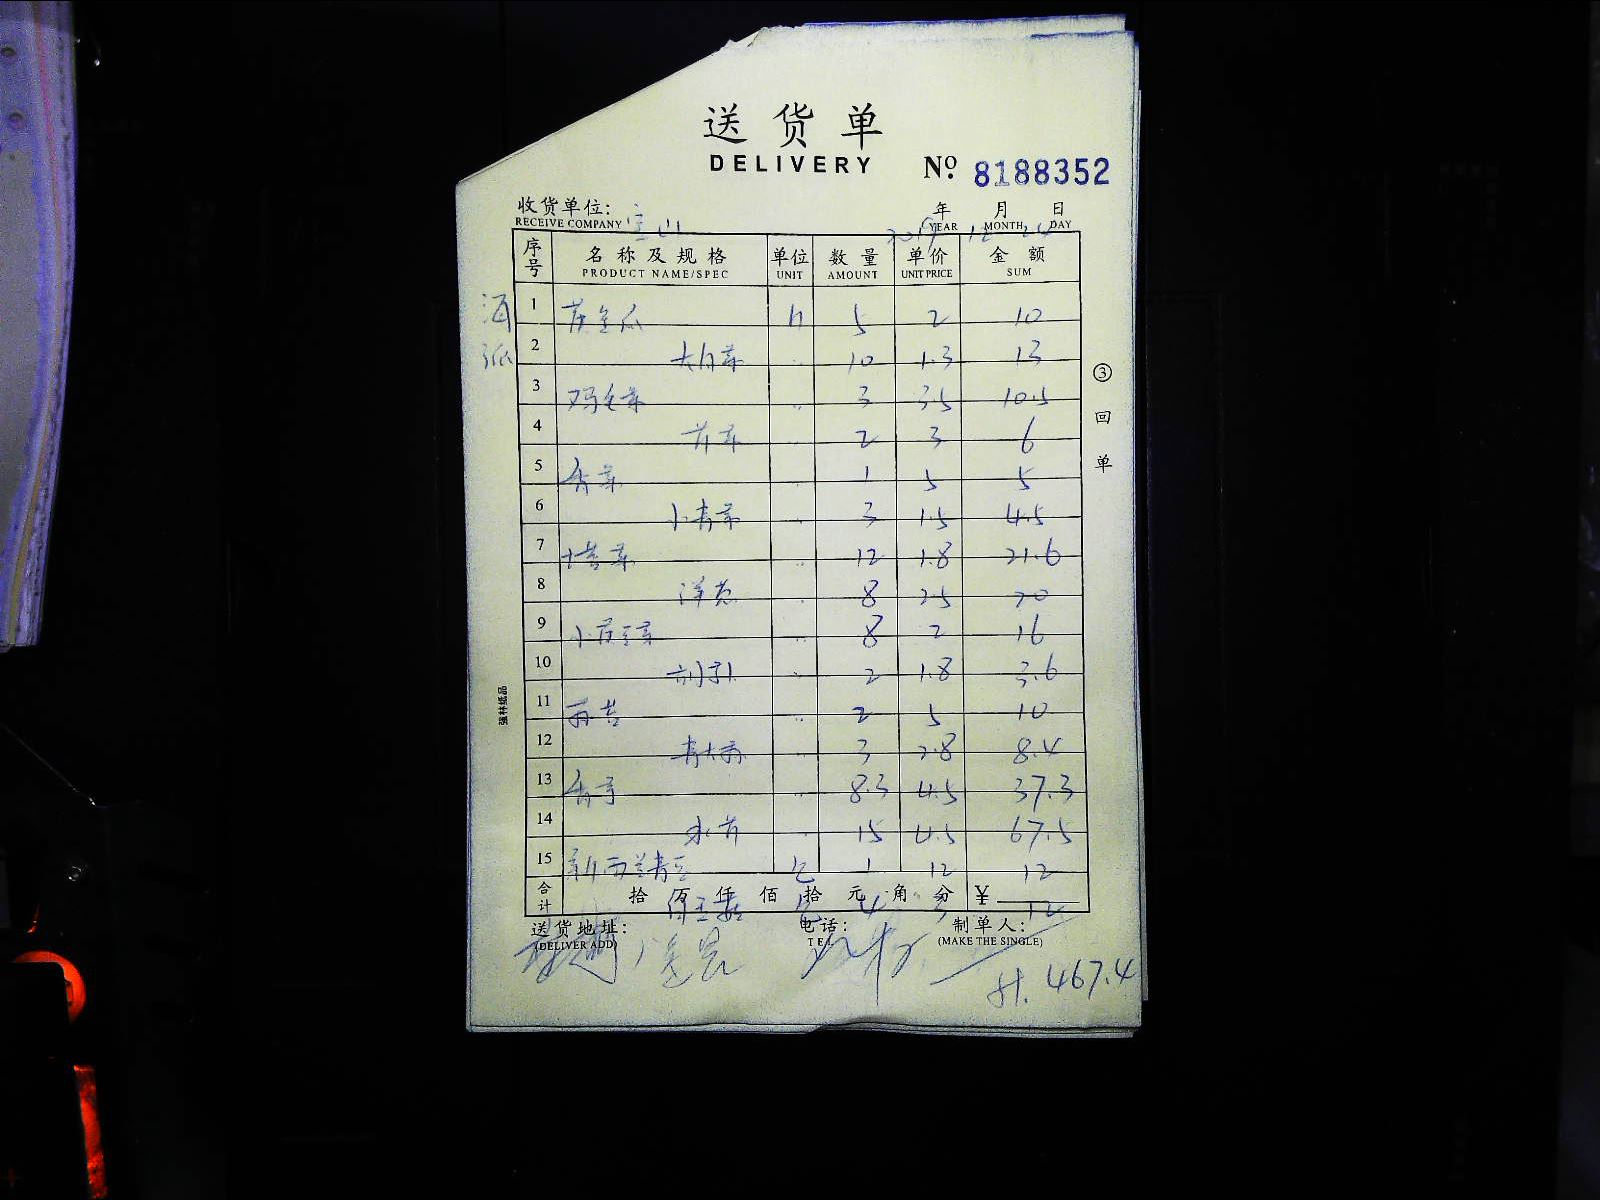 送货单
DELIVERY
No. 8188352
收货单位: 宝山 年 月 日
RECEIVE COMPANY YEAR MONTH DAY
2019 12 24
序号 名称及规格 单位 数量 单价 金额
PRODUCT NAME/SPEC UNIT AMOUNT UNIT PRICE SUM
1 5 2 10
2 大白菜 10 1.3 13
3 鸡毛菜 3 3.5 10.5
4 芹菜 2 3 6
5 香菜 1 5 5
6 小青菜 3 1.5 4.5
7 塔菜 12 1.8 21.6
8 洋葱 8 2.5 20
9 8 2 16
10 2 1.8 3.6
11 西芹 2 5 10
12 青大蒜 3 2.8 8.4
13 香芋 8.3 4.5 37.3
14 水芹 15 4.5 67.5
15 新西兰青豆 包 1 12 12
合计 拾 万 仟 佰 拾 元 角 分 ¥
包 4 3 12
送货地址: 电话: 制单人:
(DELIVER ADD) TEL (MAKE THE SINGLE)
计. 467.4
③回单
强林纸品